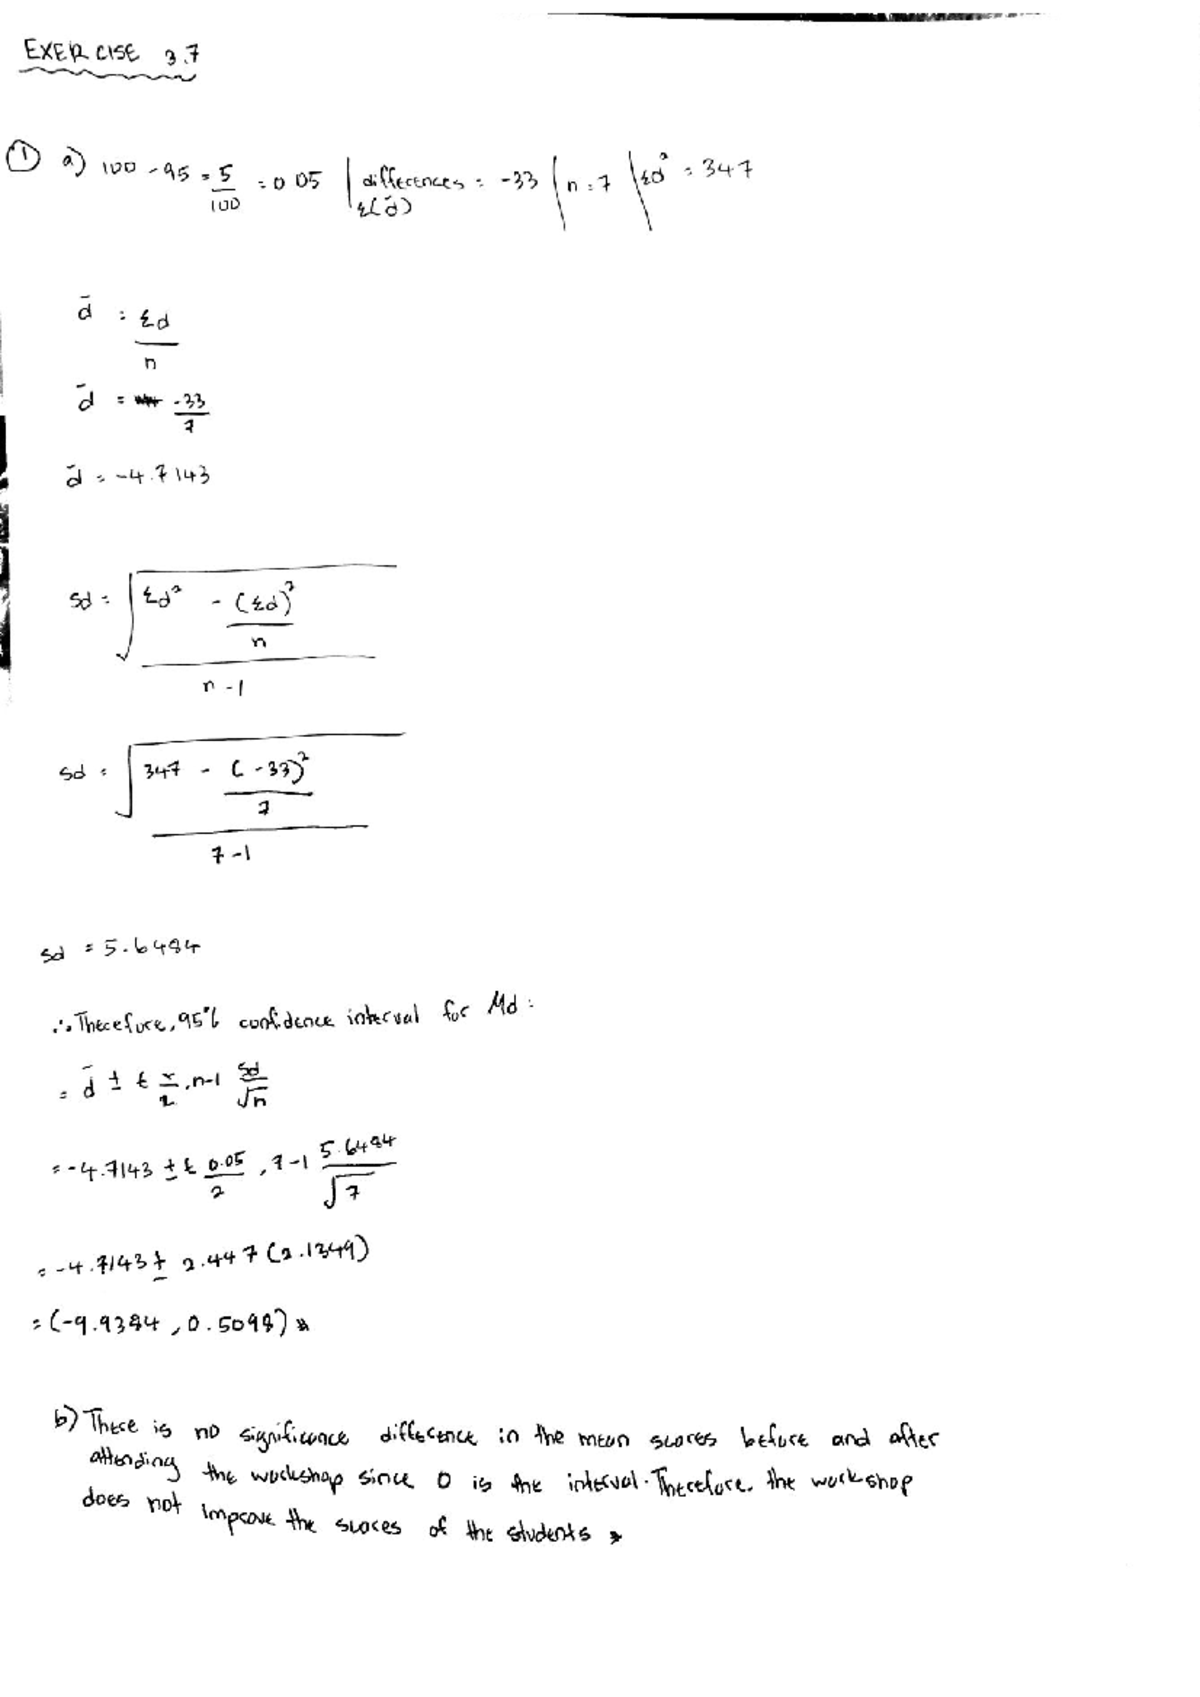 EXERCISE 3.7
① a) 100 - 95 = 5/100 = 0.05 | differences = -33 | n = 7 | Σd² = 347
Σ(d̄)
d̄ = Σd/n
d̄ = -33/7
d̄ = -4.7143
Sd = √((Σd² - (Σd)²/n)/(n-1))
Sd = √((347 - (-33)²/7)/(7-1))
Sd = 5.6484
∴ Therefore, 95% confidence interval for Md:
= d̄ ± t α/2, n-1 Sd/√n
= -4.7143 ± t 0.05/2, 7-1 5.6484/√7
= -4.7143 ± 2.447 (2.1349)
= (-9.9384, 0.5098)
b) There is no significance difference in the mean scores before and after
attending the workshop since 0 is the interval. Therefore, the workshop
does not improve the scores of the students